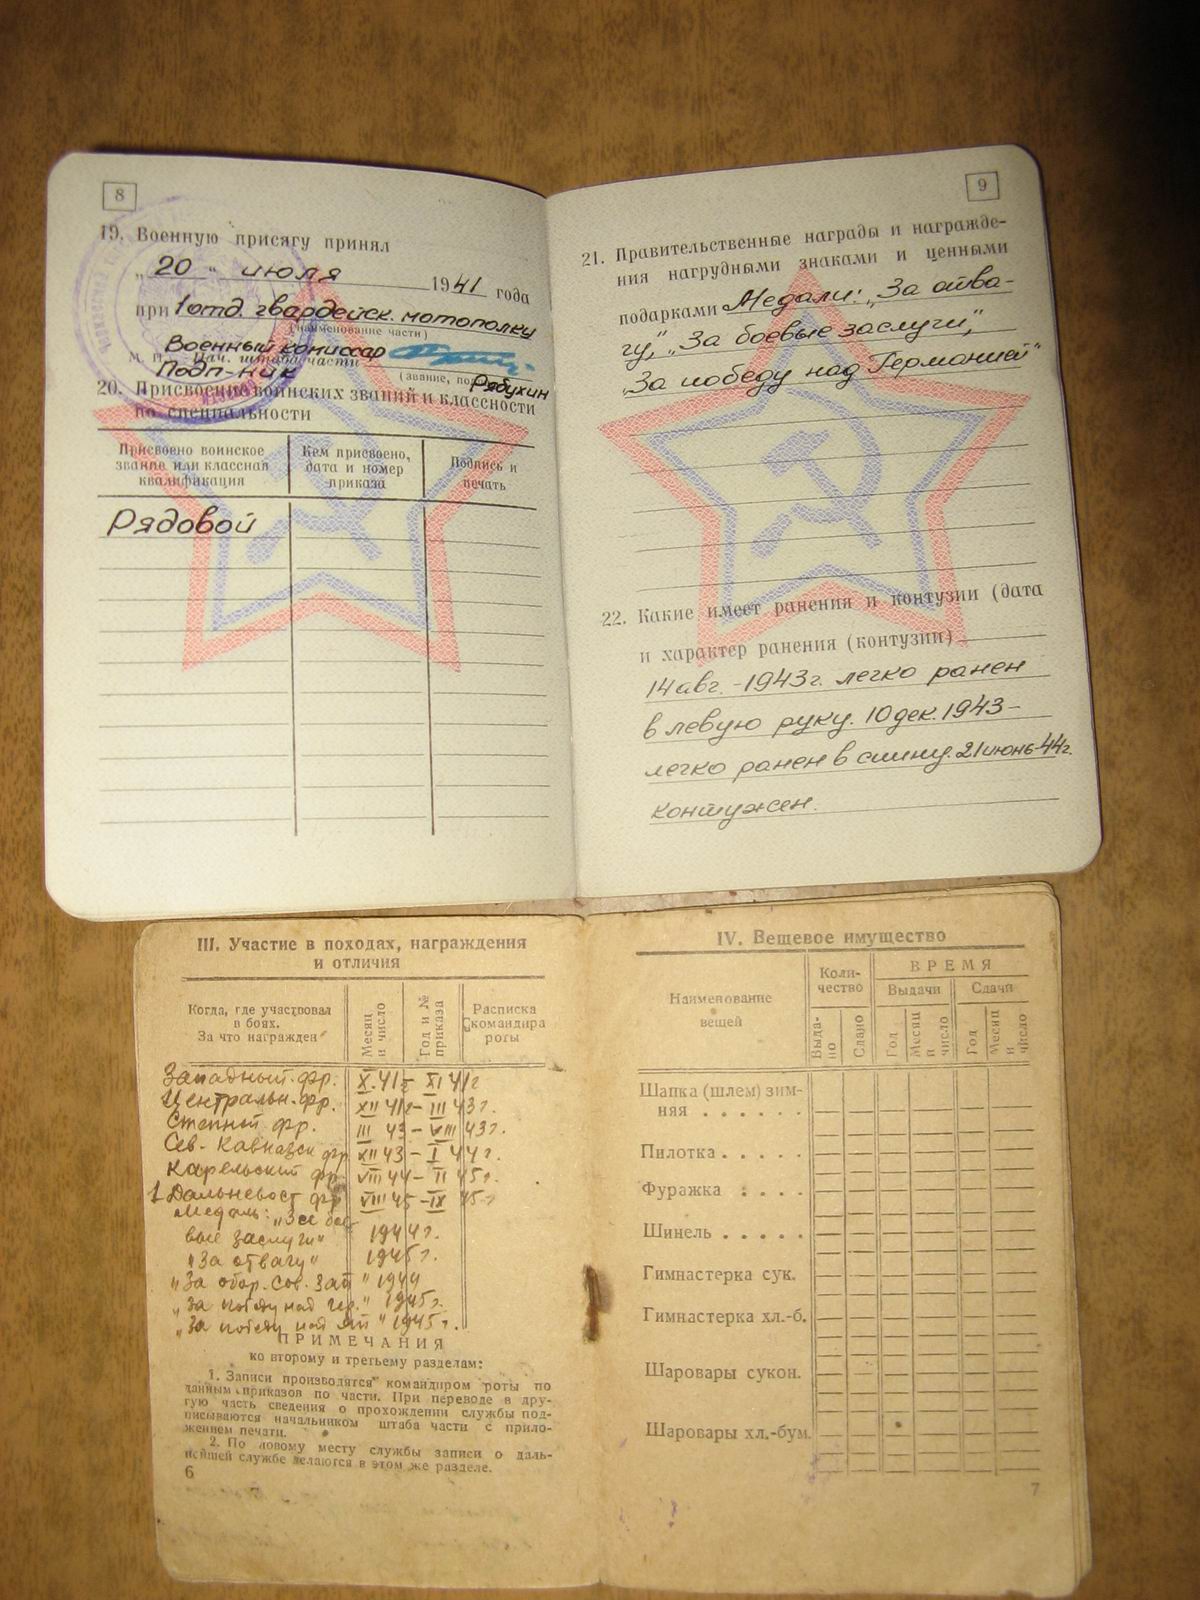 8
19. Военную присягу принял
„20“ июля 1941 года
при 1 отд. гвардейск. мотополку
(наименование части)
Военный комиссар
М. П. Нач. штаба части
Подп-ник
(звание, Рябухин
20. Присвоение воинских званий и классности
по специальности
Присвоено воинское звание или классная квалификация
Кем присвоено, дата и номер приказа
Подпись и печать
Рядовой
9
21. Правительственные награды и награжде-
ния нагрудными знаками и ценными
подарками Медали: „За отва-
гу“, „За боевые заслуги“,
„За победу над Германией“
22. Какие имеет ранения и контузии (дата
и характер ранения (контузии)
14 авг. - 1943 г. легко ранен
в левую руку. 10 дек. 1943 -
легко ранен в спину. 21 июнь-44г.
контужен.
III. Участие в походах, награждения
и отличия
Когда, где участвовал
в боях.
За что награжден
Месяц
и число
Год и №
приказа
Расписка
командира
роты
Западный фр. X. 41г - XI 41г
Центральн. фр. XII 41г - III 43г.
Степной фр. III 43 - VIII 43г.
Сев-Кавказск фр XII 43 - I 44г.
Карельский фр VIII 44 - II 45г.
1 Дальневост фр VIII 45 - IX 45г
Медаль: „За бое
вые заслуги“ 1944г.
„За отвагу“ 1945г.
„За обор. Сов. Зап“ 1944
„За победу над гер.“ 1945г.
„За победу над Яп“ 1945г.
ПРИМЕЧАНИЯ
ко второму и третьему разделам:
1. Записи производятся командиром роты по
данным приказов по части. При переводе в дру-
гую часть сведения о прохождении службы под-
писываются начальником штаба части с прило-
жением печати.
2. По новому месту службы записи о даль-
нейшей службе делаются в этом же разделе.
6
IV. Вещевое имущество
Наименование
вещей
Коли-
чество
ВРЕМЯ
Выдачи
Сдачи
Выда-
но
Сдано
Год
Месяц
и
число
Год
Месяц
и
число
Шапка (шлем) зим-
няя . . . . . .
Пилотка . . . . .
Фуражка . . . .
Шинель . . . . .
Гимнастерка сук.
Гимнастерка хл.-б.
Шаровары сукон.
Шаровары хл.-бум.
7